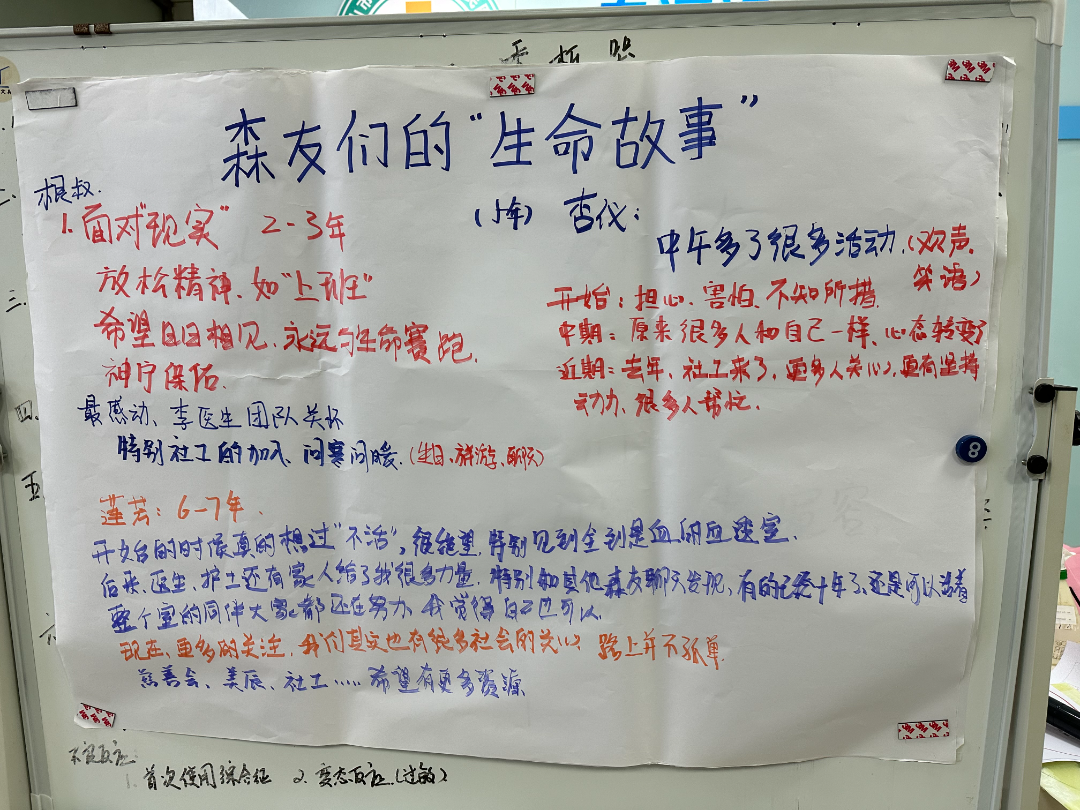 森友们的“生命故事”
根叔.
1.“面对现实” 2-3年
放松精神、如“上班”
希望日日相见、永远与生命赛跑.
神疗保佑.
最感动、李医生团队关怀
特别社工的加入、问寒问暖.(生日、旅游、聊天)
(1年) 杏仪:
中午多了很多活动.(欢声.笑语)
开始:担心、害怕、不知所措.
中期:原来很多人和自己一样、心态转变了
近期:去年、社工来了、更多人关心、更有坚持
动力、很多人帮忙.
莲芸:6-7年.
开始的时候真的想过“不活”,很绝望.特别见到全到是血的血透室.
后来、医生、护士还有家人给了我很多力量.特别和其他森友聊天发现,有的已经十年了、还是可以活着
整个室的同伴大家都还在努力、我觉得自己也可以.
现在、更多的关注.我们其实也有很多社会的关心、路上并不孤单.
慈善会、美辰、社工……希望有更多资源
不良反应
1.首次使用综合征 2.变态反应(过敏)
三.
四.
五
8